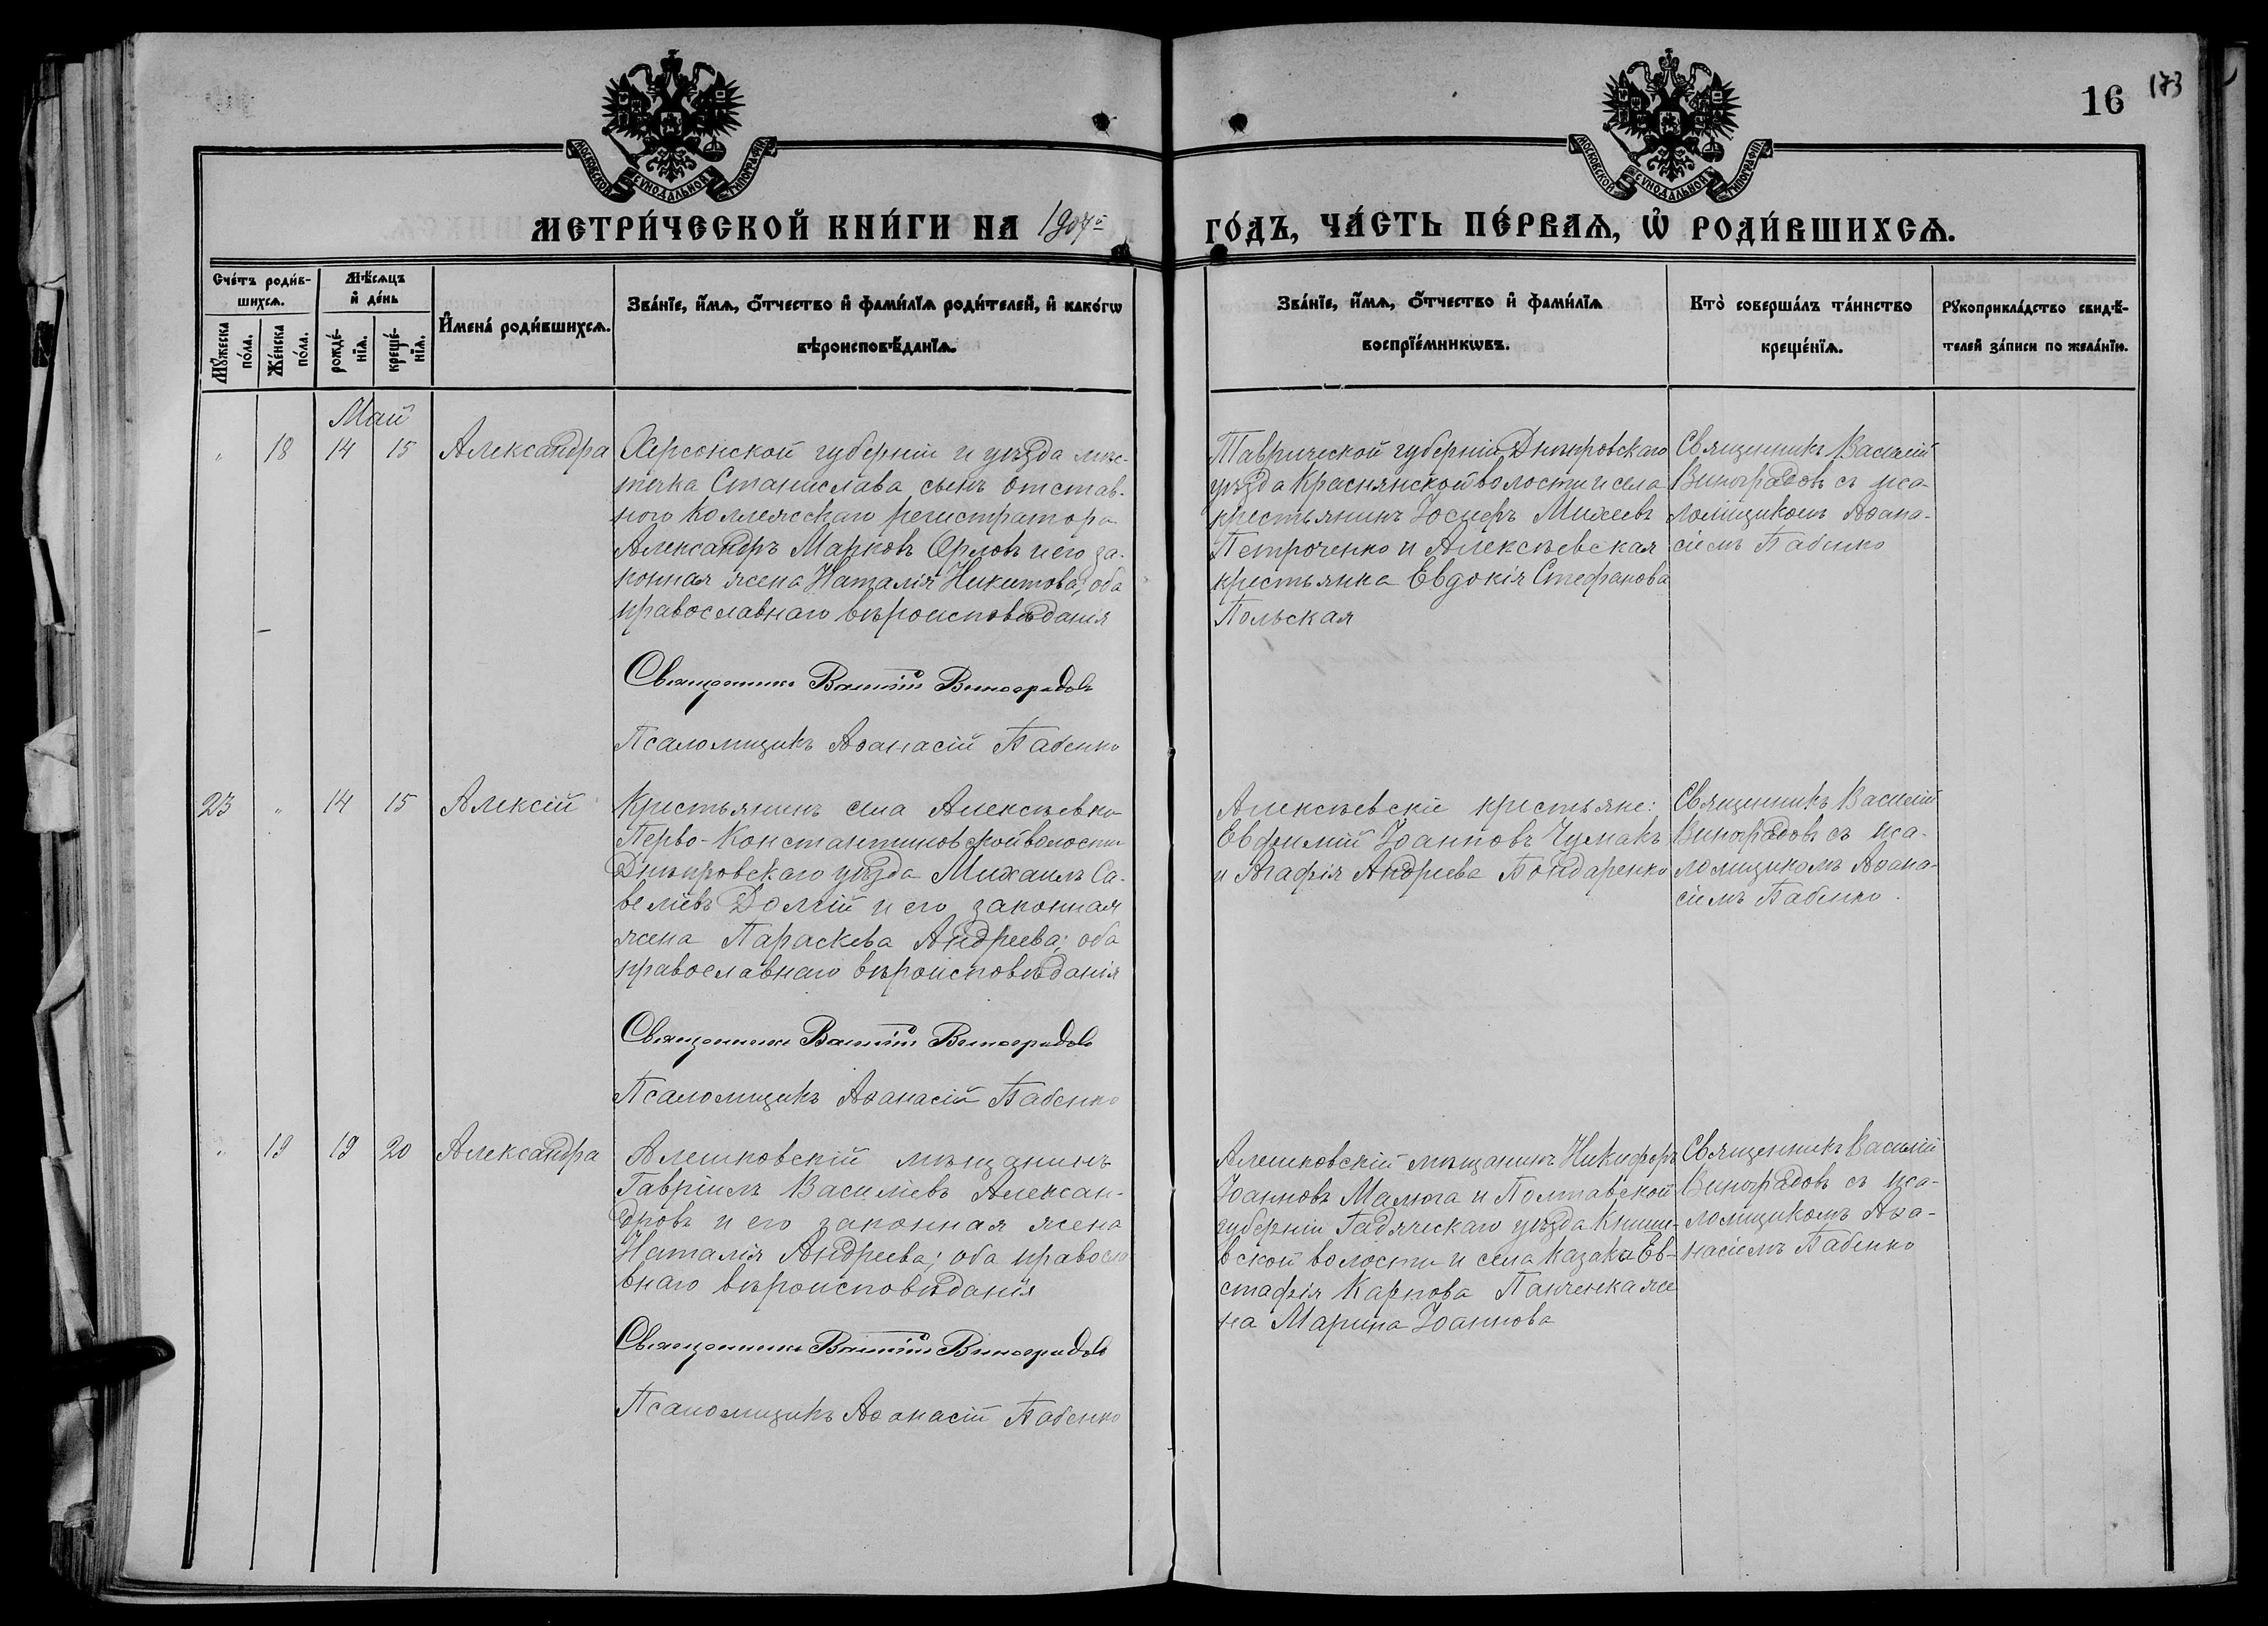 16
173
МОСКОВСКОЙ СѴНОДАЛЬНОЙ ТИПОГРАФІИ
МОСКОВСКОЙ СѴНОДАЛЬНОЙ ТИПОГРАФІИ
МЕТРИ́ЧЕСКОЙ КНИ́ГИ НА 1907й
ГО́ДЪ, ЧА́СТЬ ПЕ́РВАѦ, Ѿ РОДИ́ВШИХСѦ.
Сче́тъ роди́в-
шихсѧ.
Мꙋ́жеска
по́ла.
Же́нска
по́ла.
Мѣ́сѧцъ
и҆ де́нь
рожде́-
нїѧ.
креще́-
нїѧ.
И҆мена̀ роди́вшихсѧ.
Зва́нїе, и҆́мѧ, ѻ҆́тчество и҆ фами́лїѧ роди́телей, и҆ како́гѡ
вѣроисповѣ́данїѧ.
Зва́нїе, и҆́мѧ, ѻ҆́тчество и҆ фами́лїѧ
воспрїе́мникѡвъ.
Кто̀ соверша́лъ та́инство
креще́нїѧ.
Рꙋкоприкла́дство свидѣ́-
телей за́писи по жела́нїю.
Май
" 18 14 15 Александра
Херсонской губерніи и уѣзда мѣс-
течка Станислава, сынъ отстав-
ного Коллежскаго регистратора
Александръ Марковъ Орловъ и его за-
конная жена Наталія Никитова; оба
православнаго вѣроисповѣданія
Священникъ Василій Виноградовъ
Псаломщикъ Аѳанасій Бабенко
Таврической губерніи Днѣпровскаго
уѣзда Краснянской волости и села
крестьянинъ Іосифъ Михеевъ
Петроченко и Алексѣевская
крестьянка Евдокія Стефанова
Польская
Священникъ Василій
Виноградовъ съ пса-
ломщикомъ Аѳана-
сіемъ Бабенко
23 " 14 15 Алексій
Крестьянинъ села Алексѣевки
Перво-Константиновской волости
Днѣпровскаго уѣзда Михаилъ Са-
веліевъ Долгій и его законная
жена Параскева Андреева; оба
православнаго вѣроисповѣданія
Священникъ Василій Виноградовъ
Псаломщикъ Аѳанасій Бабенко
Алексѣевскіе крестьяне:
Евфимій Іоанновъ Чумакъ
и Агафія Андреева Бондаренко
Священникъ Василій
Виноградовъ съ пса-
ломщикомъ Аѳана-
сіемъ Бабенко.
" 19 19 20 Александра
Алешковскій мѣщанинъ
Гавріилъ Василіевъ Алексан-
дровъ и его законная жена
Наталія Андреева; оба правосла
внаго вѣроисповѣданія
Священникъ Василій Виноградовъ
Псаломщикъ Аѳанасій Бабенко
Алешковскій мѣщанинъ Никифоръ
Іоанновъ Малюга и Полтавской
губерніи Гадячскаго уѣзда
вской волости и села казака Ев-
стафія Карпова Панченка же
на Марина Іоаннова
Священникъ Василій
Виноградовъ съ пса-
ломщикомъ Аѳа-
насіемъ Бабенко